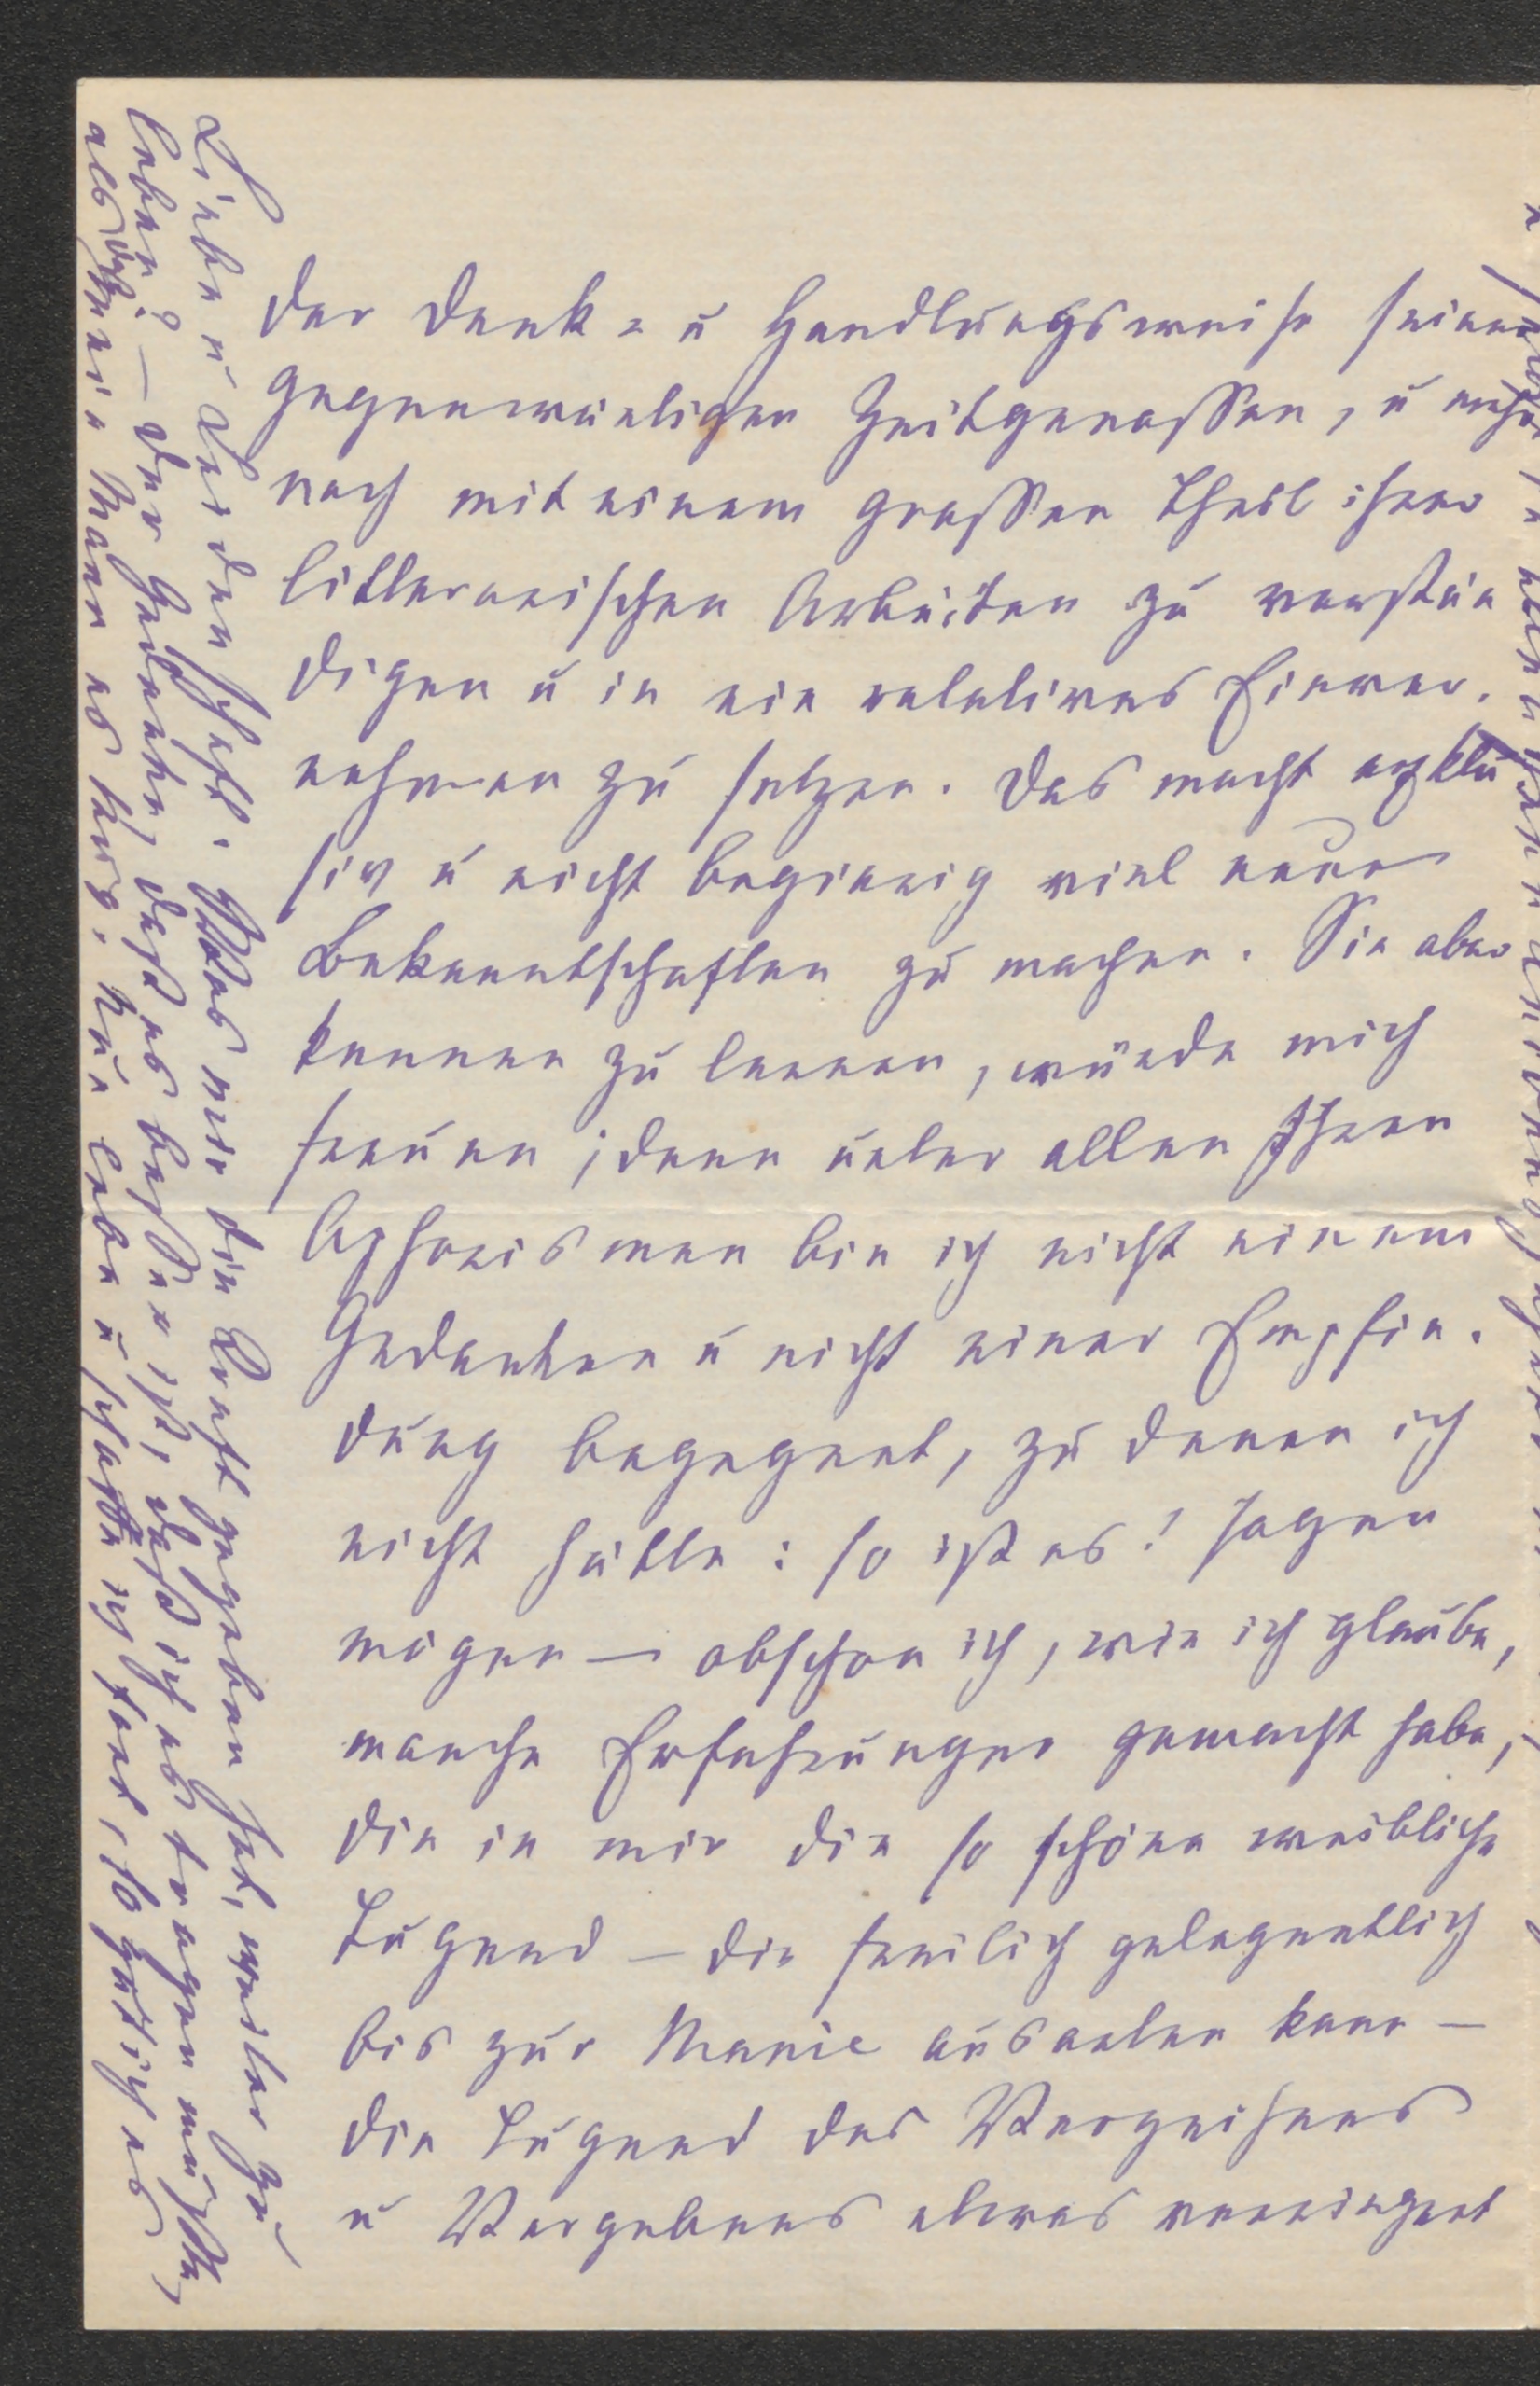 der Denk- u Handlungsweise seiner
gegenwärtigen Zeitgenossen, u mehr
noch mit einem grossen Theil ihrer
litterarischen Arbeiten zu verstän
digen u in ein relatives Einver-
nehmen zu setzen. Das macht exklu
siv u nicht begierig viel neue
Bekanntschaften zu machen. Sie aber
kennen zu lernen, würde mich
freuen; denn unter allen Ihren
Aphorismen bin ich nicht einem
Gedanken u nicht einer Empfin-
dung begegnet, zu denen ich
nicht hätte: so ist es! sagen
mögen — obschon ich, wie ich glaube,
manche Erfahrungen gemacht habe,
die in mir die so schöne weibliche
Tugend — die freilich gelegentlich
bis zur Manie ausarten kann —
die Tugend des Verzeihens
u Vergebens etwas verringert
Liebe u Leidenschaft. Was mir die Kraft gegeben hat, weiter zu
leben? — Der Gedanke, daß es besser ist, daß ich es tragen mußte,
als daß mein Mann es trug. Nun lebe u schaffe ich fort, so gut ich es